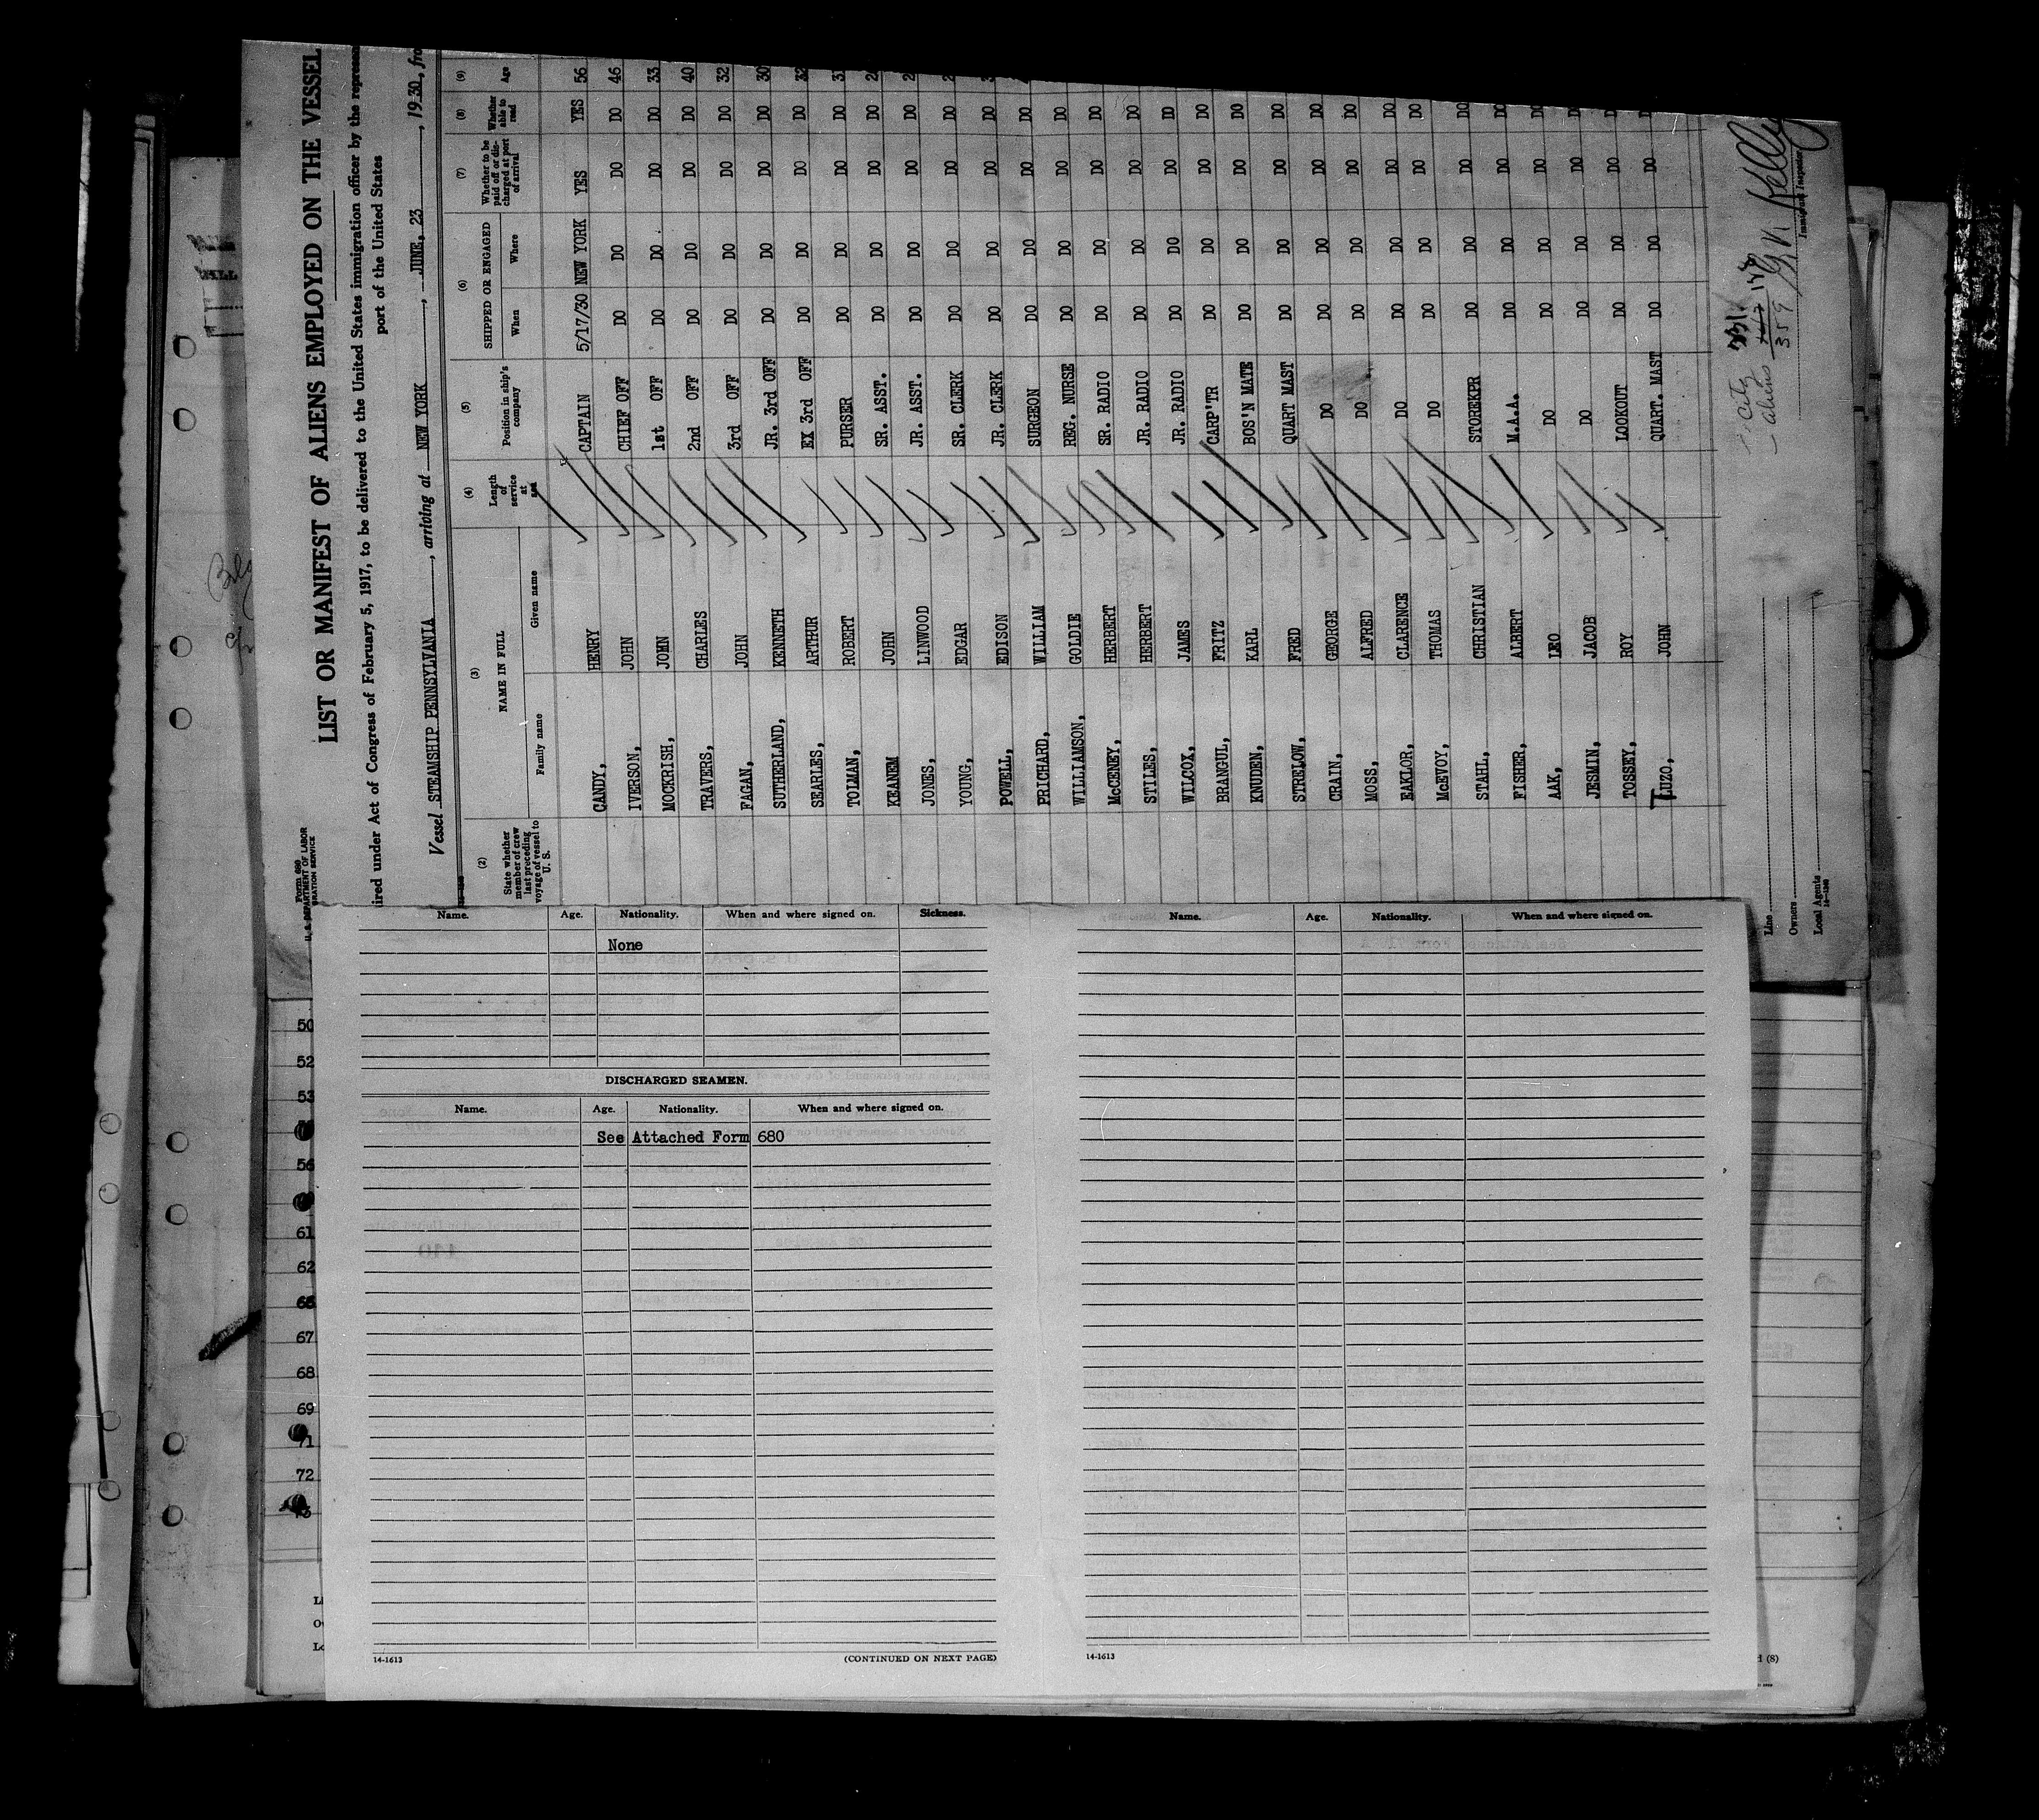 Form 680
U. S. DEPARTMENT OF LABOR
LIST OR MANIFEST OF ALIENS EMPLOYED ON THE VESSEL
ired under Act of Congress of February 5, 1917, to be delivered to the United States immigration officer by the represen
port of the United States
Vessel STEAMSHIP PENNSYLVANIA, arriving at NEW YORK, JUNE, 23, 1930, fro
(2) (3) (4) (5) (6) (7) (8) (9)
State whether member of crew last preceding voyage of vessel to U. S. NAME IN FULL Family name Given name Length of service at sea Position in ship's company SHIPPED OR ENGAGED When Where Whether to be paid off or discharged at port of arrival Whether able to read Age
CANDY, HENRY CAPTAIN 5/17/30 NEW YORK YES YES 56
IVERSON, JOHN CHIEF OFF DO DO DO DO 46
MOCKRISH, JOHN 1st OFF DO DO DO DO 33
TRAVERS, CHARLES 2nd OFF DO DO DO DO 40
FAGAN, JOHN 3rd OFF DO DO DO DO 32
SUTHERLAND, KENNETH JR. 3rd OFF DO DO DO DO 30
SEARLES, ARTHUR EX 3rd OFF DO DO DO DO 32
TOLMAN, ROBERT PURSER DO DO DO DO
KEANEM JOHN SR. ASST. DO DO DO DO
JONES, LINWOOD JR. ASST. DO DO DO DO
YOUNG, EDGAR SR. CLERK DO DO DO DO
POWELL, EDISON JR. CLERK DO DO DO DO
PRICHARD, WILLIAM SURGEON DO DO DO DO
WILLIAMSON, GOLDIE REG. NURSE DO DO DO DO
McCENEY, HERBERT SR. RADIO DO DO DO DO
STILES, HERBERT JR. RADIO DO DO DO DO
WILCOX, JAMES JR. RADIO DO DO DO DO
BRANGUL, FRITZ CARP'TR DO DO DO DO
KNUDEN, KARL BOS'N MATE DO DO DO DO
STRELOW, FRED QUART MAST DO DO DO DO
CRAIN, GEORGE DO DO DO DO DO
MOSS, ALFRED DO DO DO DO DO
EAKLOR, CLARENCE DO DO DO DO DO
McEVOY, THOMAS DO DO DO DO DO
STAHL, CHRISTIAN STOREKPR DO DO DO DO
FISHER, ALBERT M.A.A. DO DO DO DO
AAK, LEO DO DO DO DO DO
JESMIN, JACOB DO DO DO DO DO
TOSSEY, ROY LOOKOUT DO DO DO DO
TUZO, JOHN QUART. MAST DO DO DO DO
359
Kelly
Immigrant Inspector
Line
Owners
Local Agents
14-1240
Name. Age. Nationality. When and where signed on. Sickness.
None
DISCHARGED SEAMEN.
Name. Age. Nationality. When and where signed on.
See Attached Form 680
14-1613 (CONTINUED ON NEXT PAGE)
Name. Age. Nationality. When and where signed on.
14-1613
50
52
53
56
61
62
66
67
68
69
71
72
(8)